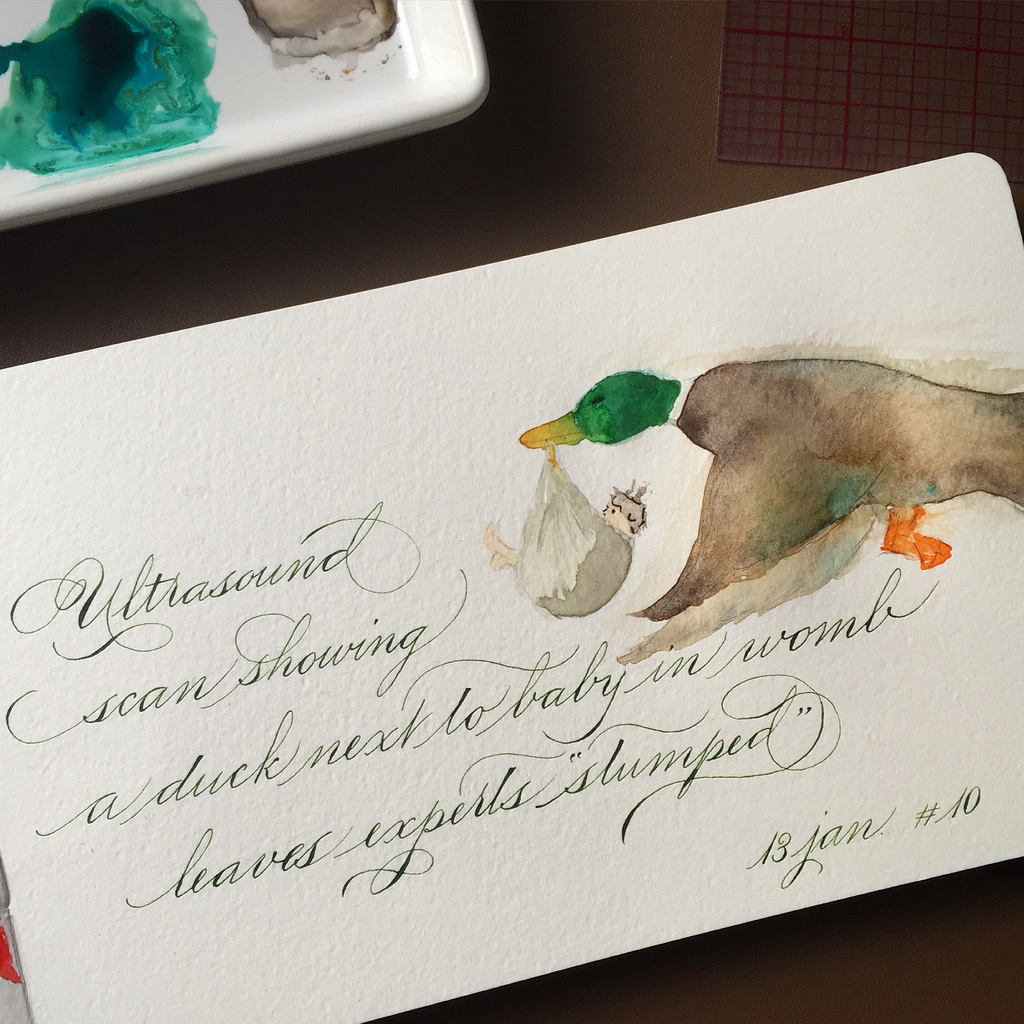 Ultrasound
scan showing
a duck next to baby in womb
leaves experts "stumped"
13 jan. #10